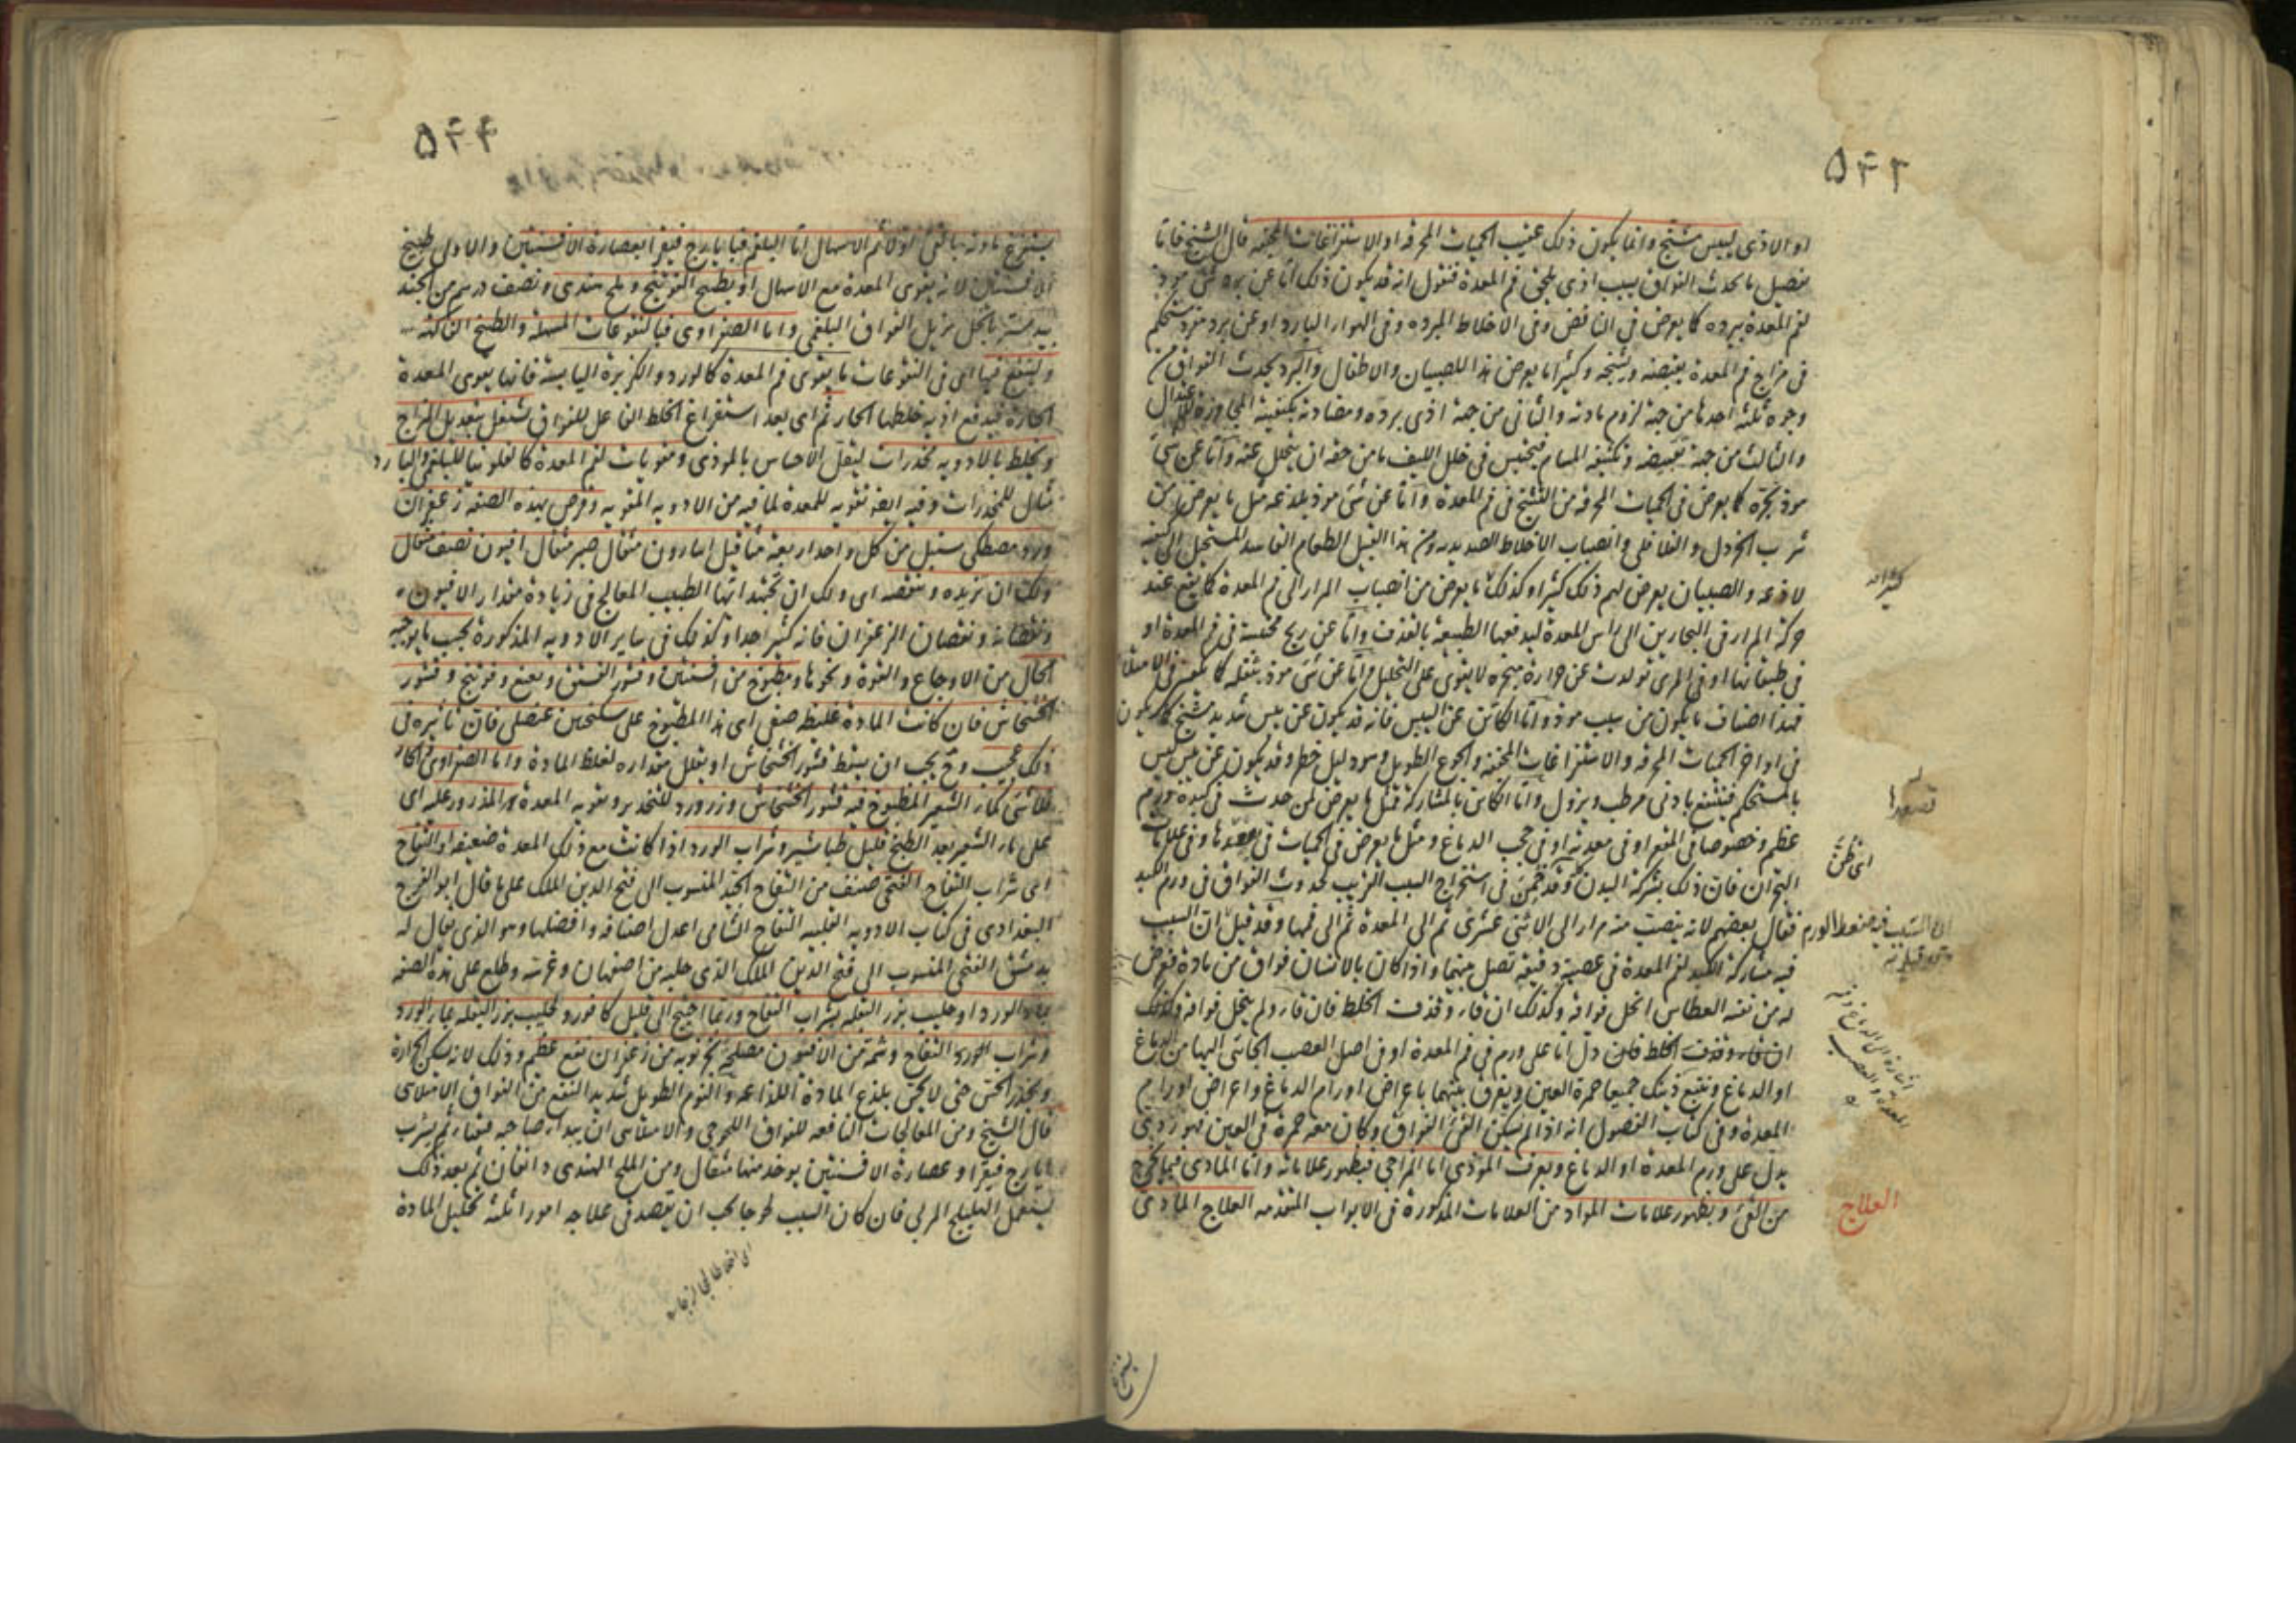 ٥٤٢
او الاذى ليبس مشنج وانما يكون ذلك عقيب الحميات المحرقه او الاستفراغات المجففه قال الشيخ فاما
تفصيل ما يحدث الفواق بسبب اذى يلحق فم المعدة فنقول انه قد يكون ذلك اما عن برد شئ مؤذ
لفم المعدة ببرده كما يعرض فى النافض وفى الاخلاط المبرده وفى الهواء البارد او عن برد مستحكم
فى مزاج فم المعدة يقبضه ويشنجه وكثيرا ما يعرض هذا للصبيان والاطفال والبرد يحدث الفواق من
وجوه ثلثه احدها من جهة لزوم مادته والثانى من جهة اذى برده ومضادته بكيفيته المجاوزة للاعتدال
والثالث من جهة تقبيضه وتكثيفه المسام فيحتبس فى خلل الليف ما من حقه ان يتحلل عنه واما عن شئ
مؤذ بحره كما يعرض فى الحميات المحرقه من التشنج فى فم المعدة واما عن شئ مؤذ بلذعه مثل ما يعرض من
شرب الخردل والفلافلى وانصباب الاخلاط الصديديه ومن هذا القبيل الطعام الفاسد المستحيل الى كيفيه
لاذعه والصبيان يعرض لهم ذلك كثيرا وكذلك ما يعرض من انصباب المرار الى فم المعدة كما يقع عند
حركة المرار فى البحارين الى راس المعدة ليدفعها الطبيعه بالقذف واما عن ريح محتبسة فى فم المعدة او
فى طبقاتها او فى المرى تولدت عن حرارة مبخره لا يقوى على التحليل واما عن شئ مؤذ بثقله كما يعرض فى الامتلاء
فهذا اصناف ما يكون من سبب مؤذ واما الكائن عن اليبس فانه قد يكون عن يبس شديد مشنج كما يكون
فى اواخر الحميات المحرقه والاستفراغات المجففه والجوع الطويل وهو دليل خطر وقد يكون عن يبس ليس
بالمستحكم فينتفع بادنى مرطب ويزول واما الكائن بالمشاركة فمثل ما يعرض لمن حدث فى كبده ورم
عظيم وخصوصا فى المقعر او فى معدته او فى حجب الدماغ ومثل ما يعرض فى الحميات فى تصعدها وفى علامات
البحران فان ذلك بشركة البدن وقد خمن فى استخراج السبب القريب لحدوث الفواق فى ورم الكبد
فقال بعضهم لانه ينصب منه مرار الى الاثنى عشرى ثم الى المعدة ثم الى فمها وقد قيل ان السبب
فيه مشاركة الكبد لفم المعدة فى عصبة دقيقة تصل بينهما واذا كان بالانسان فواق من مادة فعرض
له من نفسه العطاس انحل فواقه وكذلك ان قاء وقذف الخلط فان قاء ولم ينحل فواقه وكذلك
ان قاء وقذف الخلط فلن دل اما على ورم فى فم المعدة او فى اصل العصب الجائى اليها من الدماغ
او الدماغ ويتبع ذينك جميعا حمرة العين ويفرق بينهما باعراض اورام الدماغ واعراض اورام
المعدة وفى كتاب الفصول انه اذا لم يسكن القئ الفواق وكان معه حمرة فى العين فهو ردى
يدل على ورم المعدة او الدماغ ويعرف المؤذى اما المزاجى فبظهور علاماته واما المادى فبما يخرج
من القئ وبظهور علامات المواد من العلامات المذكورة فى الابواب المتقدمه العلاج المادى
تصعدا
اى ظن
العلاج
٥٤٤
يستفرغ مادته بالقئ اولا ثم الاسهال اما البلغم فبايارج فيقرا بعصارة الافسنتين والاولى طبيخ
الافسنتين لانه يقوى المعدة مع الاسهال او بطبيخ الفوتنج وملح هندى ونصف درهم من الجند
بيدستر بالخل يزيل الفواق البلغمى واما الصفراوى فبالنقوعات المسهلة والطبيخ الفاكهه
ولينقع فيها اى فى النقوعات ما يقوى فم المعدة كالورد والكزبرة اليابسة فانها يقوى المعدة
الحارة فيدفع اذيه خلطها الحار ثم اى بعد استفراغ الخلط الفاعل للفواق تشتغل بتعديل المزاج
ويخلط بالادويه مخدرات ليقل الاحساس بالمؤذى ومقويات لفم المعدة كالفلونيا للبلغم والبارد
شامل للمخدرات وفيه ايضا تقويه للمعدة لما فيه من الادويه المقويه وقرص بهذه الصفه زعفران
ورد ومصطكى سنبل من كل واحد اربعة مثاقيل اسارون مثقال صبر مثقال افيون نصف مثقال
ولك ان تزيده وتنقصه اى ولك ان تجتهد ايها الطبيب المعالج فى زيادة مقدار الافيون
ونقصانه ونقصان الزعفران فانه كثير جدا وكذلك فى ساير الادويه المذكورة بحسب ما يوجبه
الحال من الاوجاع والقوة ونحوها ومطبوخ من افسنتين وقشور الفستق ونعنع وفوتنج وقشور
الخشخاش فان كانت المادة غليظة صفى اى هذا المطبوخ على سكنجبين عنصلى فان تاثيره فى
ذلك عجيب وح يجب ان يسقط قشور الخشخاش او يقلل مقداره لغلظ المادة واما الصفراوى الحار
فلا شئ كماء الشعير المطبوخ فيه قشور الخشخاش وزر ورد للتخدير وتقويه المعدة المذرور عليه اى
على ماء الشعير بعد الطبخ قليل طباشير وشراب الورد اذا كانت مع ذلك المعدة ضعيفه او التفاح
اى شراب التفاح الفتحى صنف من التفاح الجيد المنسوب الى فتح الدين الملك على ما قال ابو الفرج
البغدادى فى كتاب الادويه القلبيه التفاح الشامى اعدل اصنافه وافضلها وهو الذى يقال له
بدمشق الفتحى المنسوب الى فتح الدين الملك الذى جلبه من اصفهان وغرسه وطلع على هذه الصفه
ماء الورد او حليب بزر البقله بشراب التفاح وربما احتيج الى قليل كافور وحليب بزر البقله بماء الورد
وشراب التفاح وشمة من الافيون مصلحة بحزنوبه من زعفران نفع عظيم وذلك لانه يسكن الحرارة
ويخدر الحس حتى لا يحس بلذع المادة اللذاعه والنوم الطويل شديد النفع من الفواق الامتلائى
قال الشيخ ومن المعالجات النافعه للفواق اللحوجى والامتلائى ان يبدا صاحبه فيتقيا ثم يشرب
ايارج فيقرا وعصارة الافسنتين يوخذ منهما مثقال ومن الملح الهندى دانقان ثم بعد ذلك
ليستعمل الهليلج المربى فان كان السبب لحوجا يجب ان تقصد فى علاجه امورا ثلثة تحليل المادة